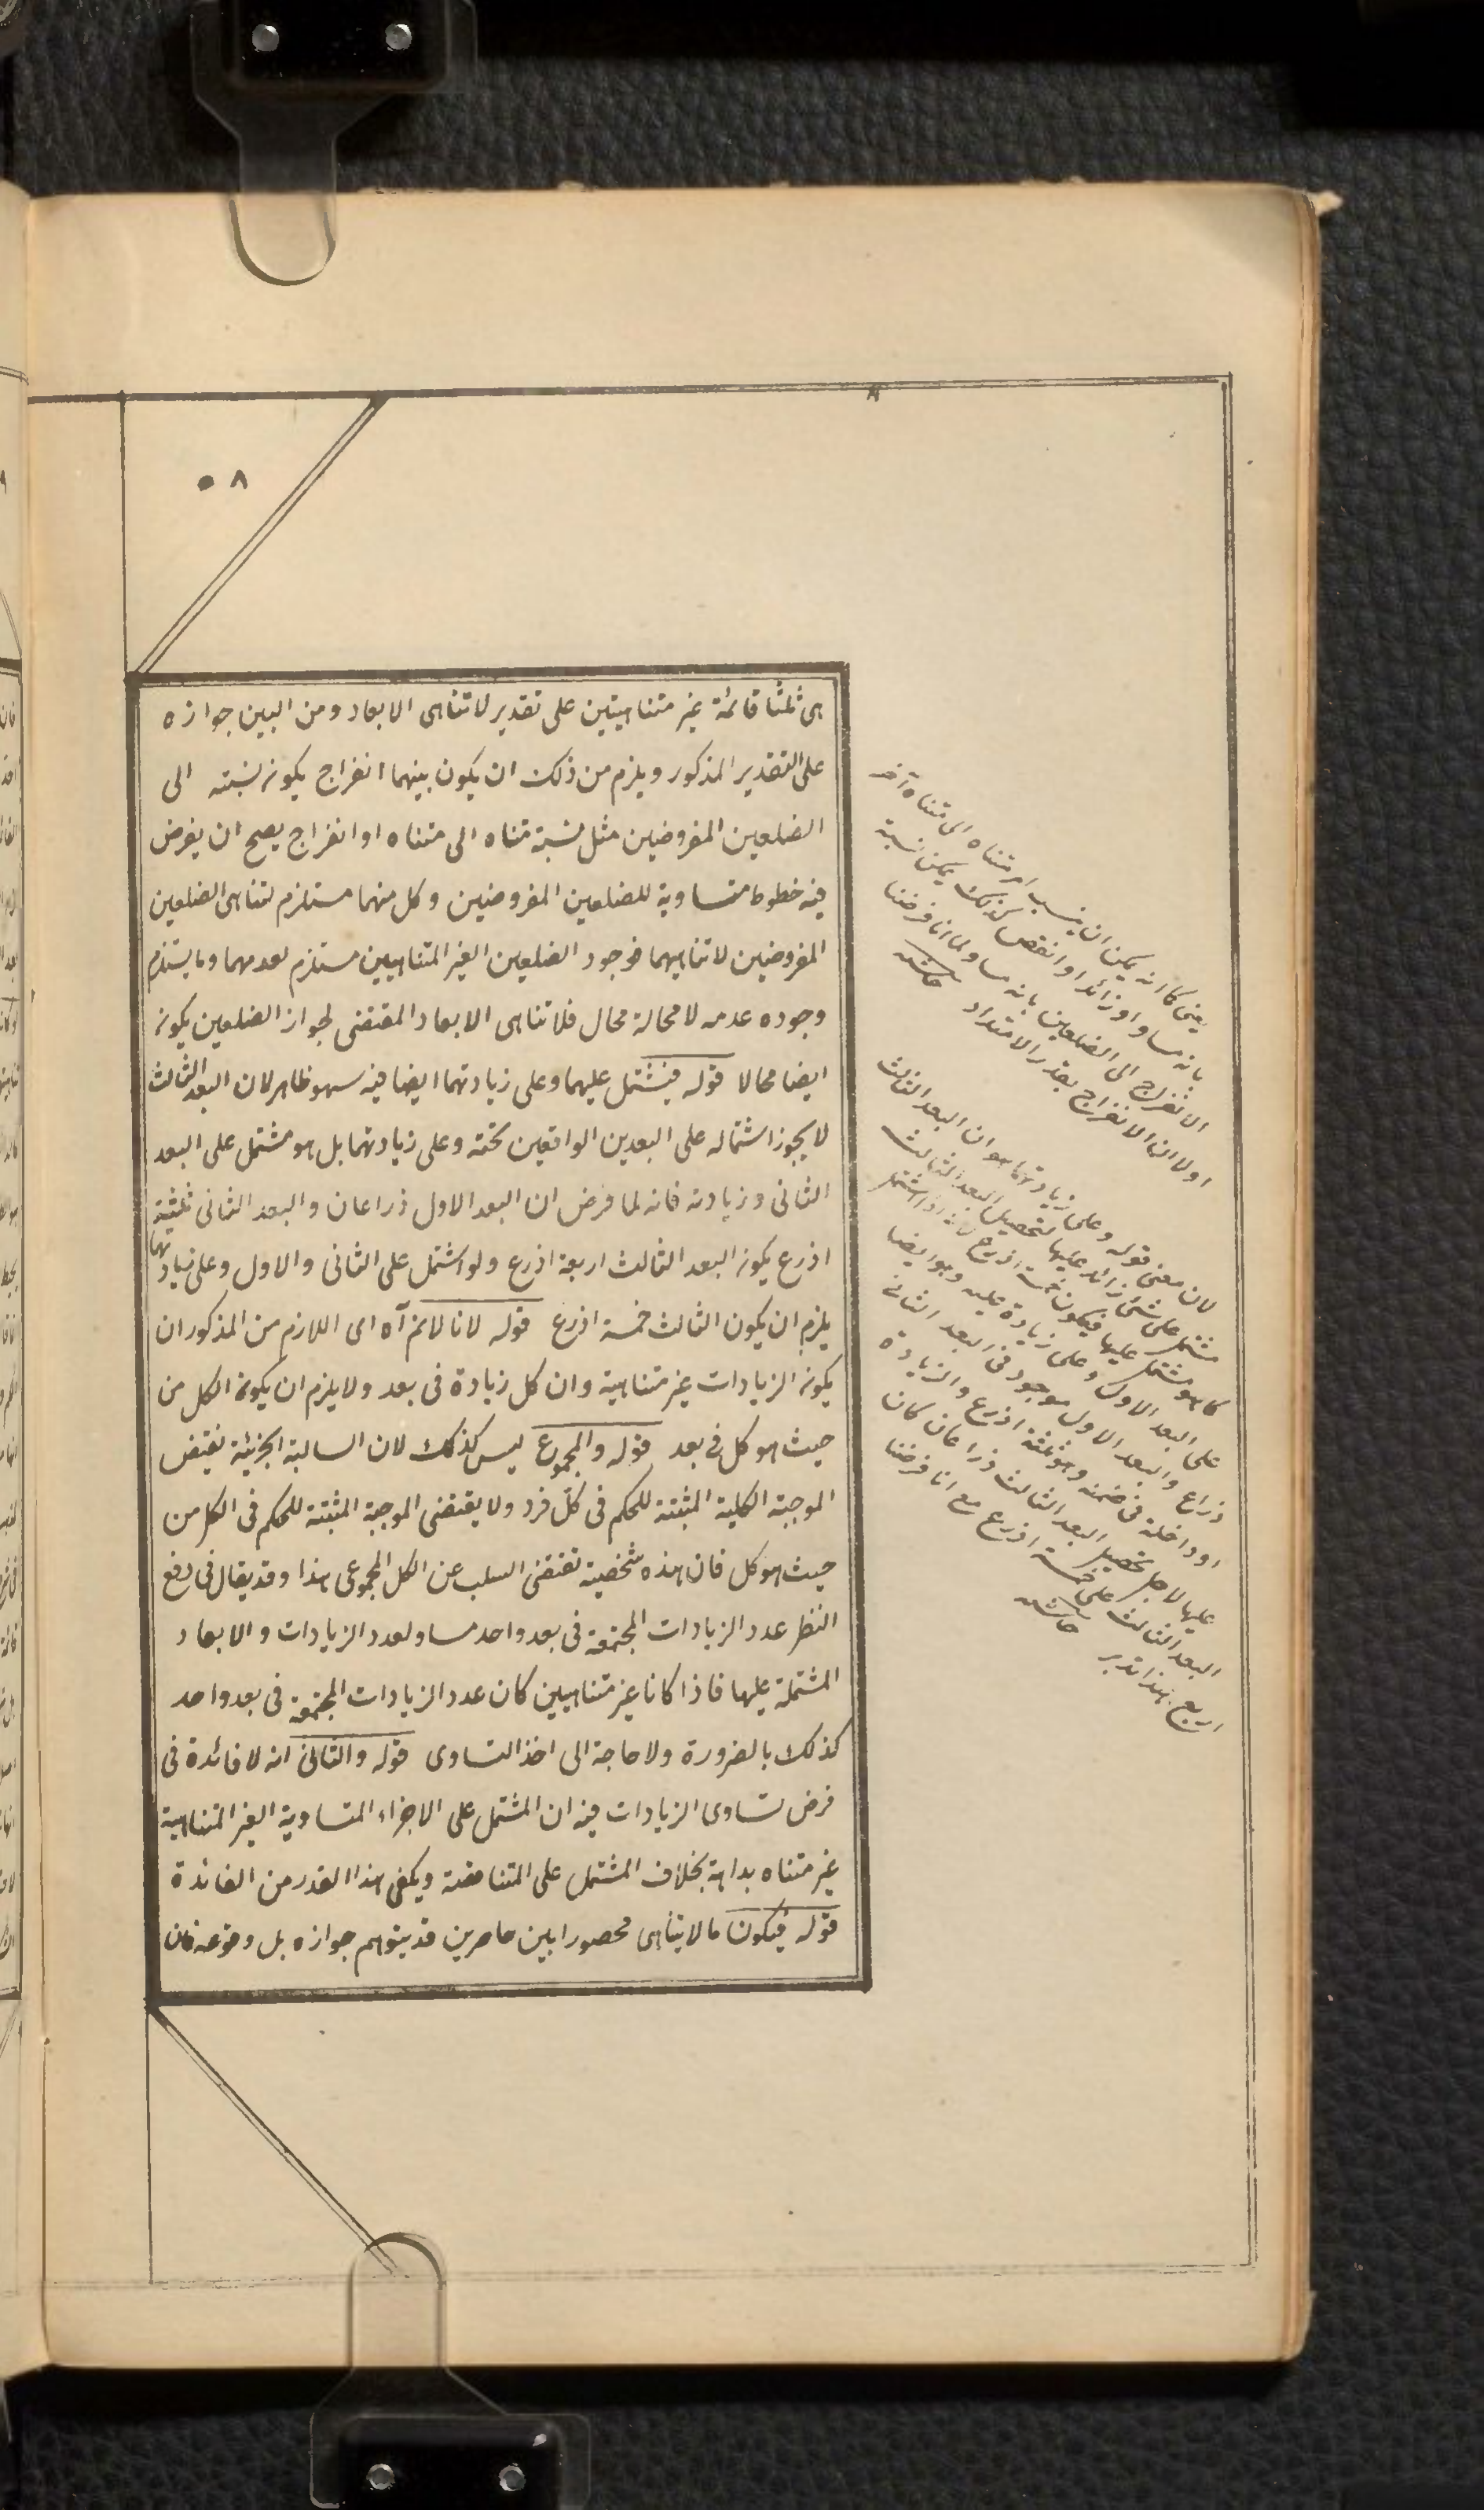 ٨
٨٠
هى ثلثا قائمة غير متناهيتين على تقدير لا تناهى الابعاد ومن البين جوازه
على التقدير المذكور ويلزم من ذلك ان يكون بينهما انفراج يكون نسبته الى
الضلعين المفروضين مثل نسبة متناه الى متناه او انفراج يصح ان يفرض
فيه خطوط متساوية للضلعين المفروضين وكل منهما مستلزم لتناهى الضلعين
المفروضين لا تناهيهما فوجود الضلعين الغير المتناهيين مستلزم لعدمهما وما يستلزم
وجوده عدمه لا محالة محال فلا تناهى الابعاد المقتضى لجواز الضلعين يكون
ايضا محالا قوله فيشتمل عليهما وعلى زيادتهما ايضا فيه سهو ظاهر لان البعد الثالث
لا يجوز اشتماله على البعدين الواقعين تحته وعلى زيادتهما بل هو مشتمل على البعد
الثانى وزيادته فانه لما فرض ان البعد الاول ذراعان والبعد الثانى ثلثة
اذرع يكون البعد الثالث اربعة اذرع ولو اشتمل على الثانى والاول وعلى زيادتهما
يلزم ان يكون الثالث خمسة اذرع قوله لانا لانم آه اى اللازم من المذكور ان
يكون الزيادات غير متناهية وان كل زيادة فى بعد ولا يلزم ان يكون الكل من
حيث هو كل فى بعد قوله والمجموع ليس كذلك لان السالبة الجزئية نقيض
الموجبة الكلية المثبتة للحكم فى كل فرد ولا يقتضى الموجبة المثبتة للحكم فى الكل من
حيث هو كل فان هذه شخصية تقتضى السلب عن الكل المجموعى هذا وقد يقال فى دفع
النظر عدد الزيادات المجتمعة فى بعد واحد مساو لعدد الزيادات والابعاد
المشتملة عليها فاذا كانا غير متناهيين كان عدد الزيادات المجتمعة فى بعد واحد
كذلك بالضرورة ولا حاجة الى اخذ التساوى قوله والثانى انه لا فائدة فى
فرض تساوى الزيادات فيه ان المشتمل على الاجزاء المتساوية الغير المتناهية
غير متناه بداهة بخلاف المشتمل على المتناقصة ويكفى هذا القدر من الفائدة
قوله فيكون ما لا يتناهى محصورا بين حاصرين قد يتوهم جوازه بل وقوعه فان
يعنى كما انه يمكن ان ينسب امر متناه الى متناه آخر
بانه مساو او زائد او انقص كذلك يمكن نسبة
الانفراج الى الضلعين بانه مساو لما انا فرضنا
اولا ان الانفراج بقدر الامتداد
لان معنى قوله وعلى زيادتهما هو ان البعد الثالث
مشتمل على شئ زائد عليها لتحصيل البعد الثالث
كما هو مشتمل عليها فيكون خمسة اذرع اشتمل
على البعد الاول وعلى زيادة عليه وهو ايضا
ذراع والبعد الاول موجود فى البعد الثانى
او داخلة فى ضمنه وهو ثلثة اذرع والزيادة
عليها لاجل تحصيل البعد الثالث ذراعان كان
البعد الثالث على خمسة اذرع مع انا فرضنا
اربع هذا تدبر